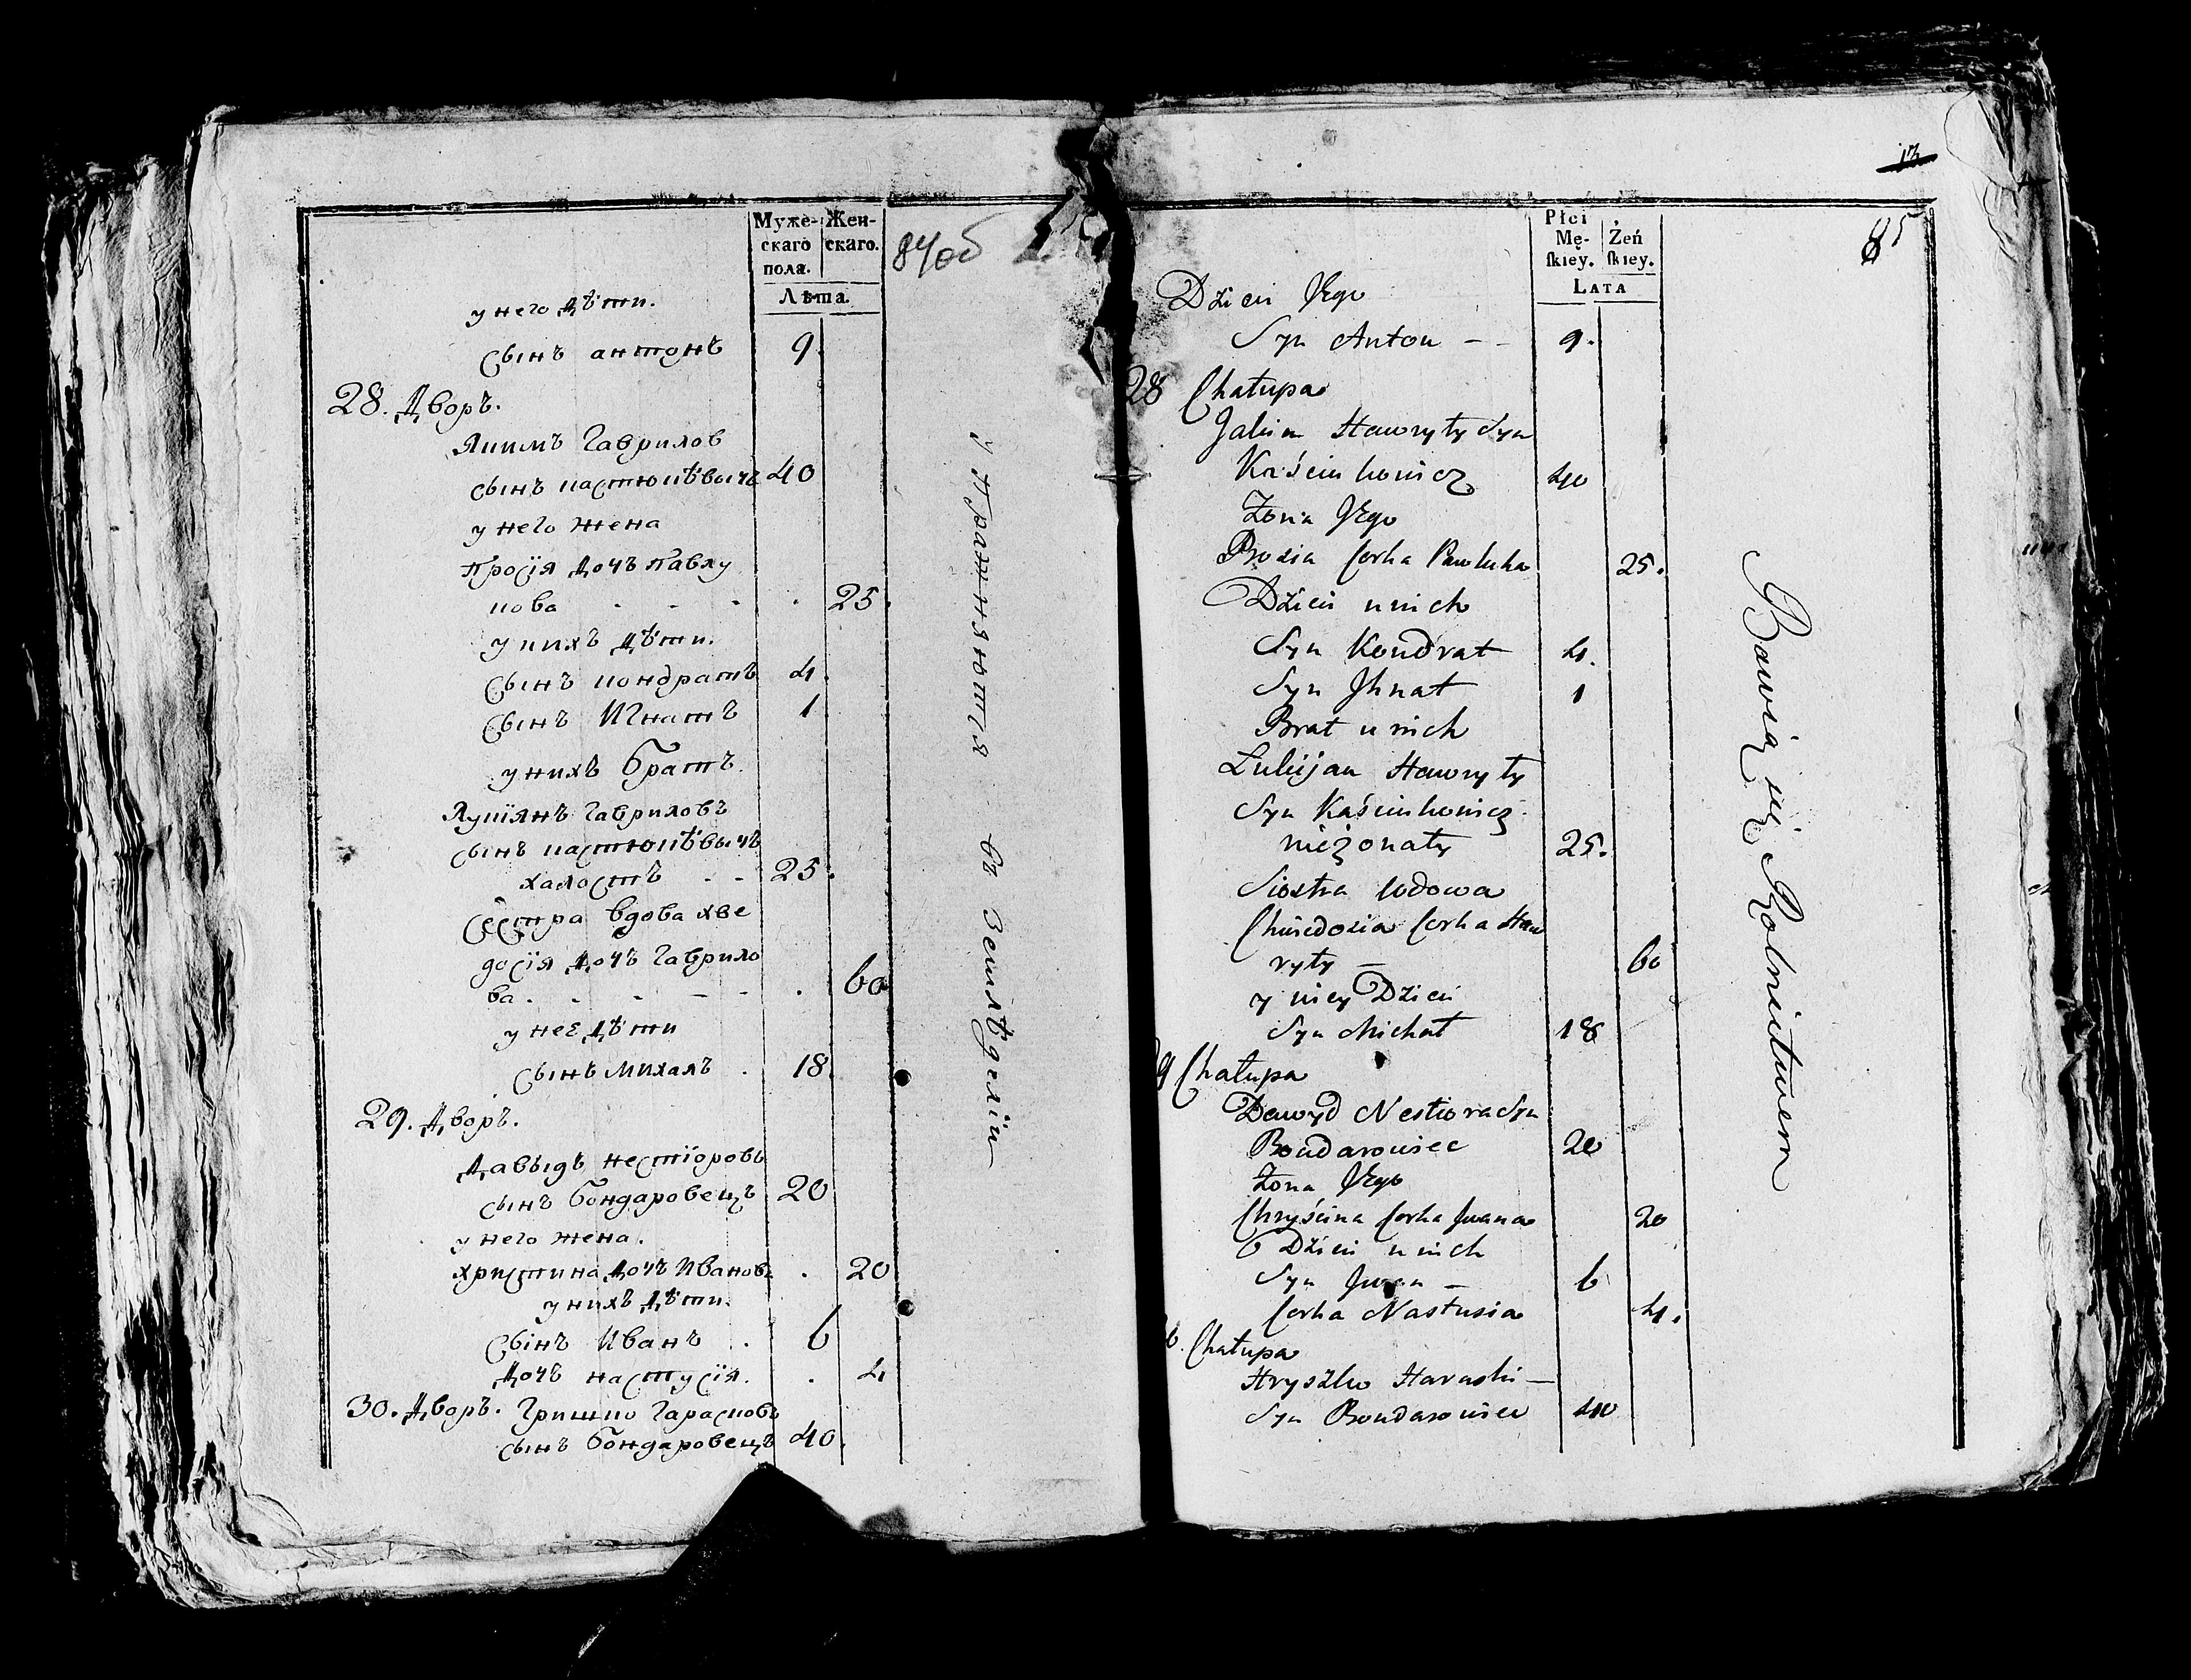 Муже-
скаго
пола.
Жен-
скаго.
Лѣта.
84об
у него дѣти.
сынъ антонъ 9.
28. дворъ.
Якимъ Гаврилов
сынъ кастюкѣвычъ 40
у него жена
Просiя дочъ павлу
кова 25.
у нихъ дѣти.
сынъ кондратъ 4.
сынъ Игнатъ 1
у нихъ братъ.
Лукiянъ Гавриловъ
сынъ кастюкѣвычъ
халостъ - - 25.
сестра вдова хве
досiя дочъ Гаврило
ва. 60
у неє дѣти
сынъ михалъ . 18.
29. дворъ.
давыдъ нестiоровъ
сынъ бондаровецъ 20
у него жена.
христина дочъ Иванова . 20
у нихъ дѣти.
сынъ Иванъ . 6
дочъ настусiя. . 4
30. дворъ. Гришко Гарасковъ
сынъ бондаровецъ 40.
Упражняются въ Земледелiи
13
85
Płci
Mę-
skiey.
Żeń
skiey.
Lata
Dzieci Jego
Syn Anton - - 9.
28 Chałupa
Jakim Hawryły Syn
Kaściukowicz 40
Żona Jego
Prosia Corka Pawluka 25.
Dzieci u nich
Syn Kondrat 4.
Syn Jhnat 1
Brat u nich
Łukijan Hawryły
Syn Kaściukowicz
nieżonaty 25.
Siostra wdowa
Chwiedosia Corka Haw
ryły - 60
y niey Dzieci
Syn Michał 18
9 Chałupa
Dawyd Nestiora Syn
Bondarowiec 20
Żona Jego
Chryścina Corka Jwana 20
Dzieci u nich
Syn Jwan - 6
Corka Nastusia 4.
Chałupa
Hryszko Haraski -
Syn Bondarowiec 40
Bawią się Rolnictwem